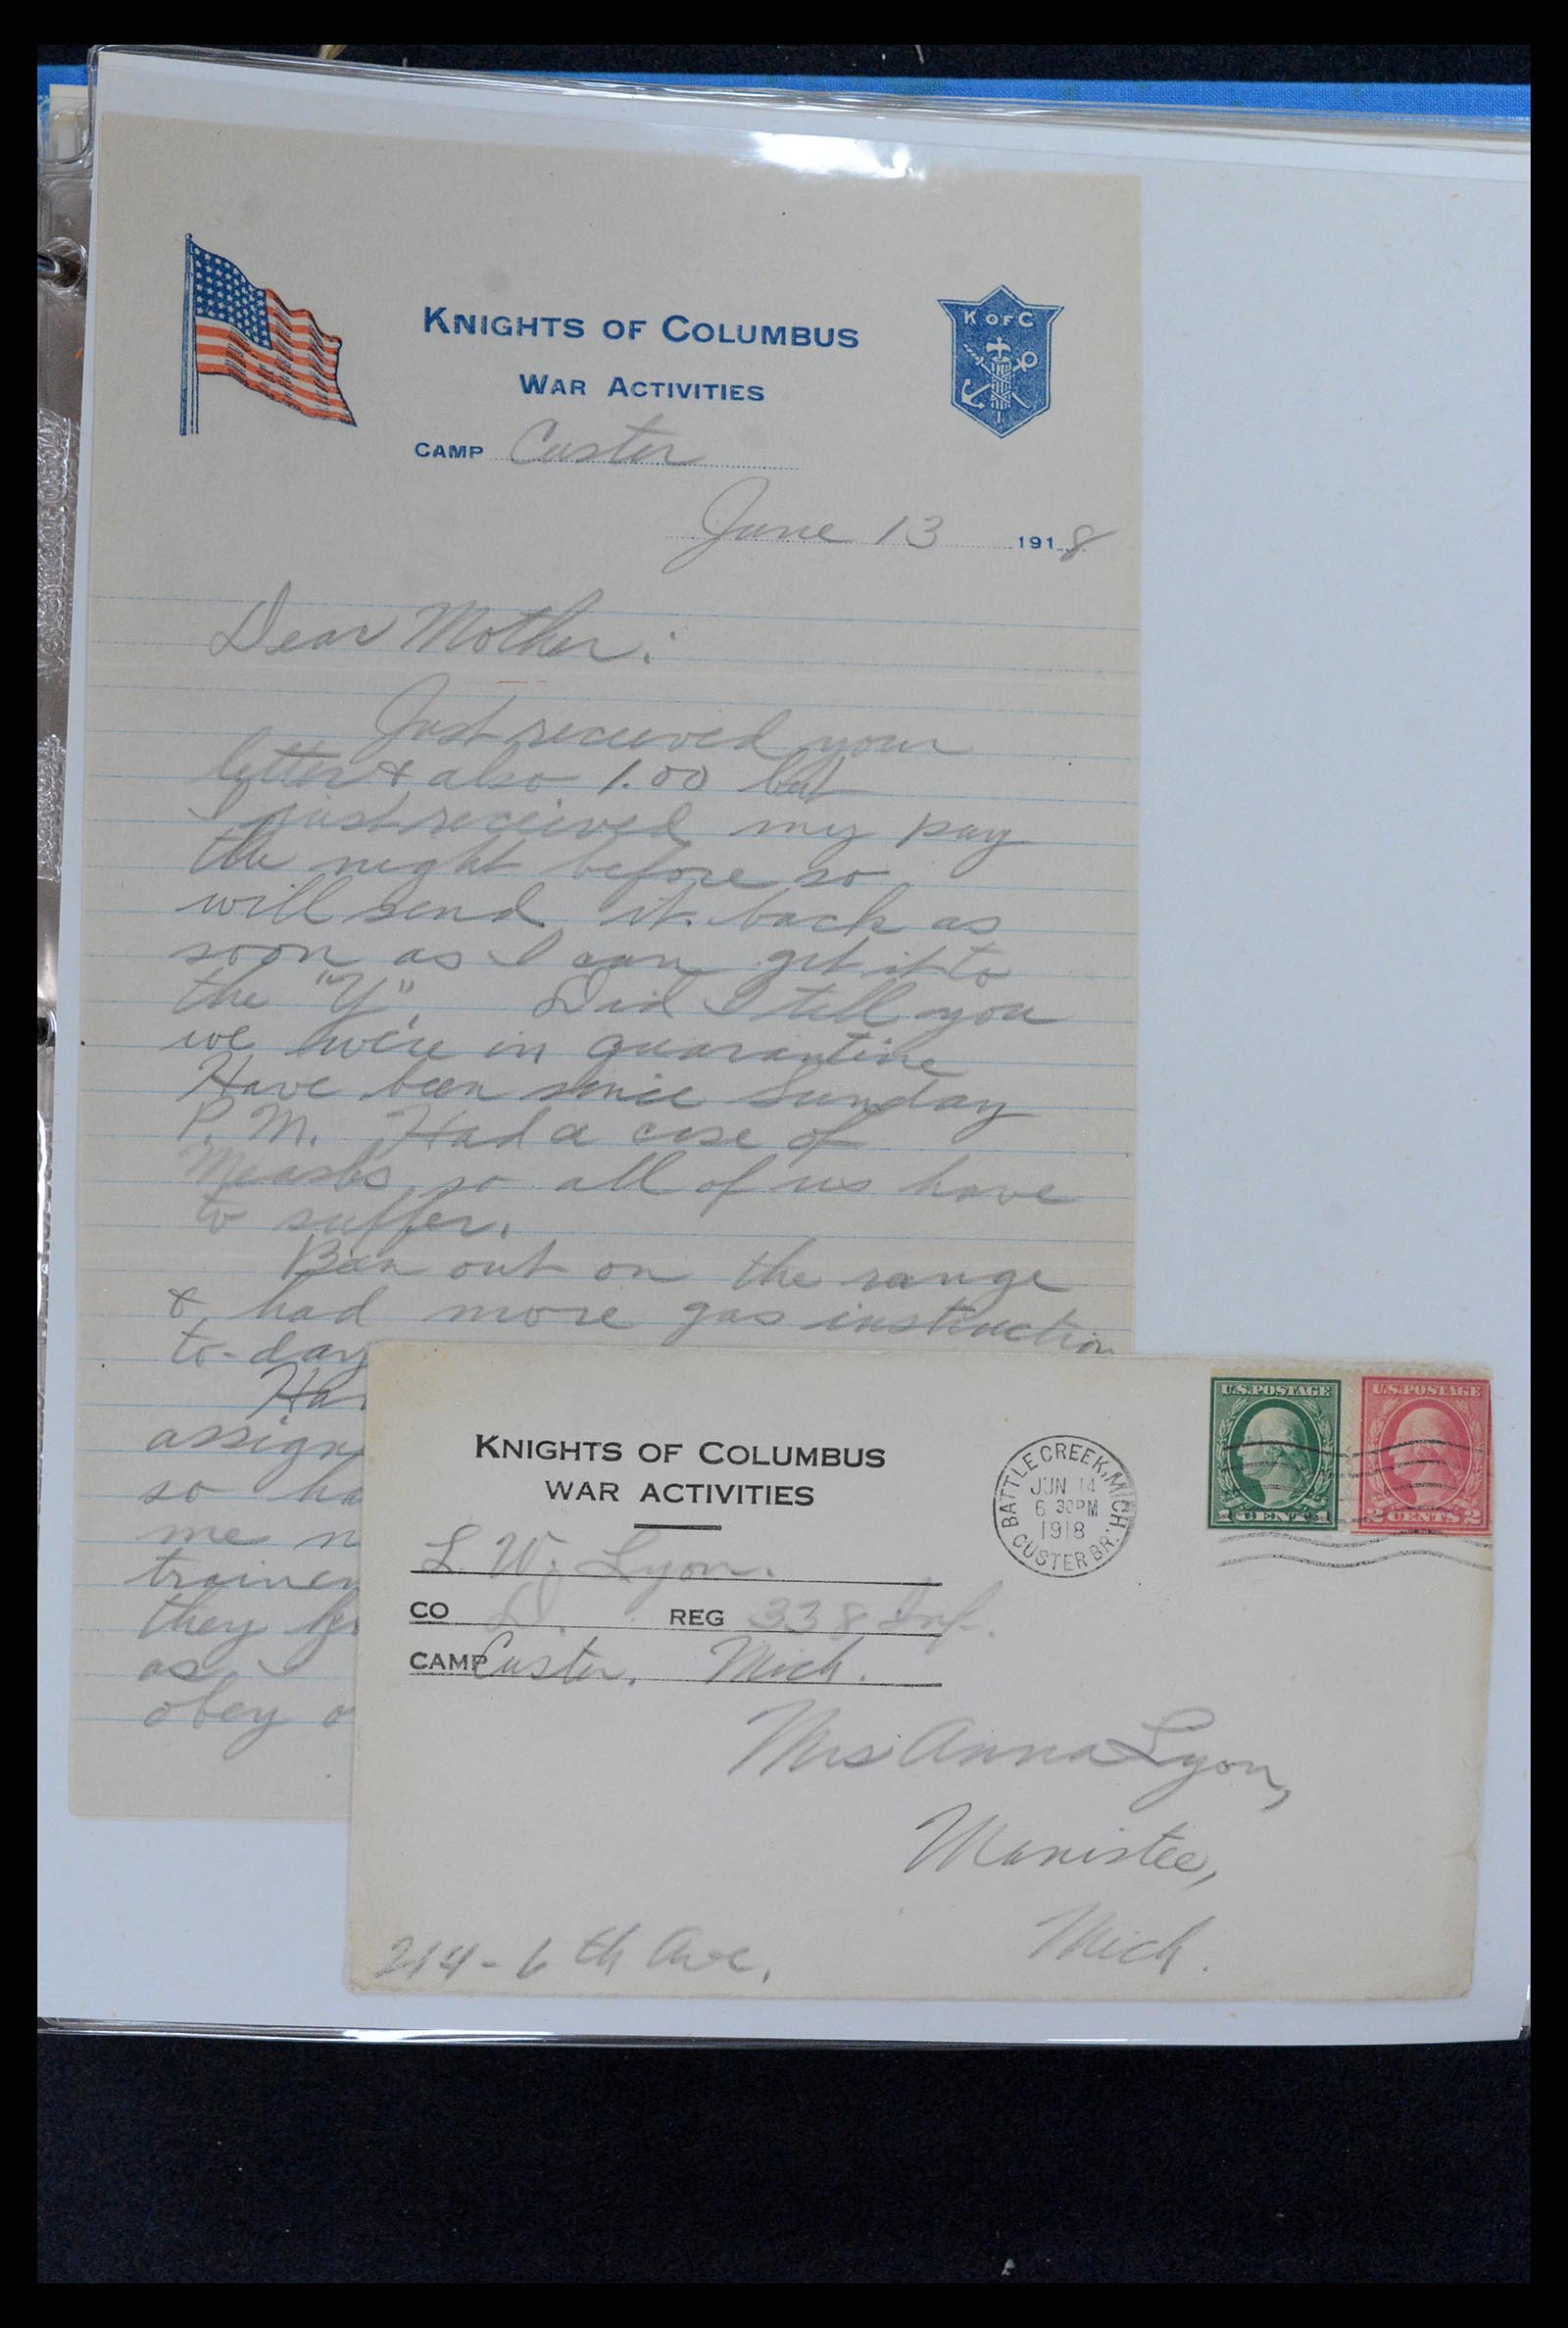 KNIGHTS OF COLUMBUS
WAR ACTIVITIES
K OF C
CAMP Custer
June 13 1918
Dear Mother:
Just recieved your
letter & also 1.00 but
I just received my pay
the night before so
will send it back as
soon as I can get it to
the "Y". Did I tell you
we were in quarantine
Have been since Sunday
P.M. Had a case of
Measles so all of us have
to suffer.
Been out on the range
& had more gas instruction
to-day
Ha
assign
so ha
me n
trainen
they
as I
obey o
KNIGHTS OF COLUMBUS
WAR ACTIVITIES
L. W. Lyon.
CO D. REG 338 Inf.
CAMP Custer, Mich.
BATTLE CREEK, MICH.
JUN 14
6 30PM
1918
CUSTER BR.
U.S. POSTAGE
1 CENT 1
U.S. POSTAGE
2 CENTS 2
Mrs Anna Lyon,
Manistee,
Mich.
214-6th Ave.